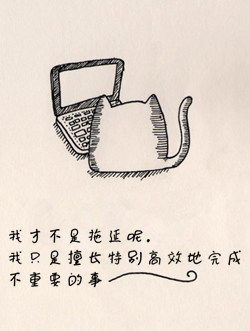 我才不是拖延呢.
我只是擅长特别高效地完成
不重要的事